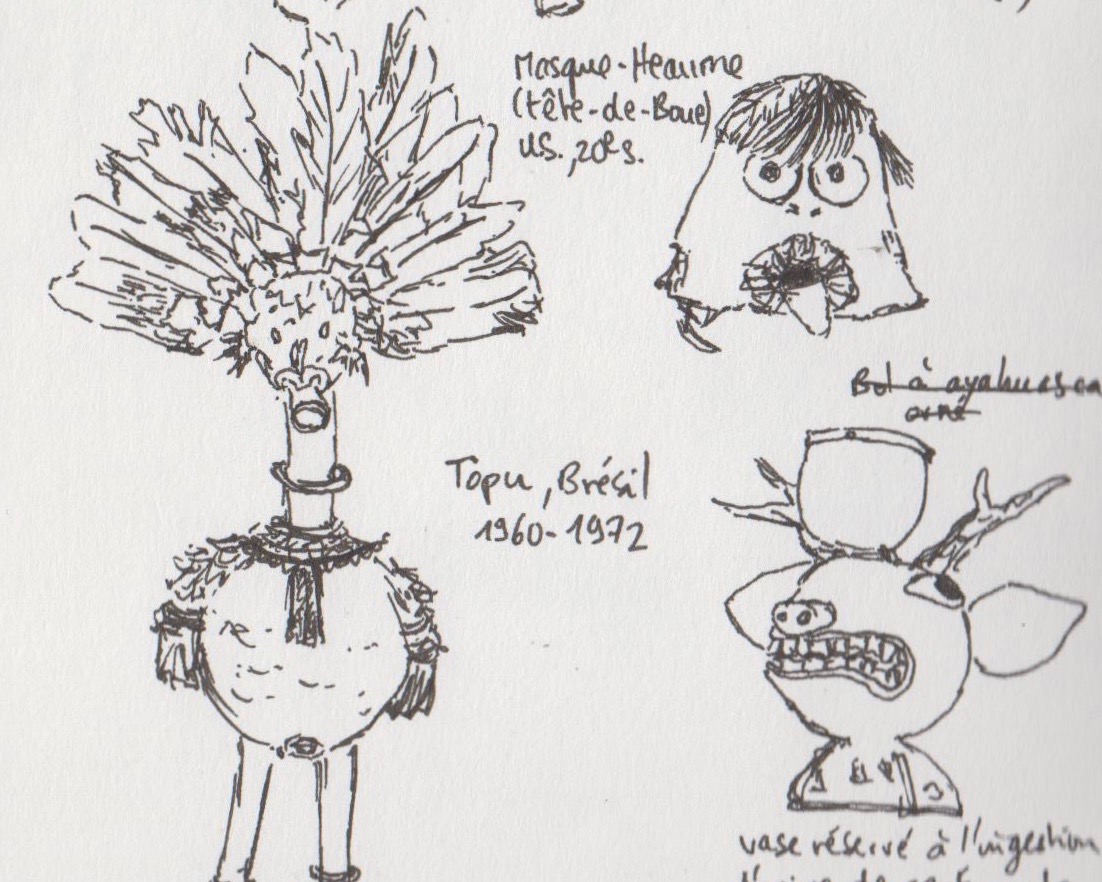 Masque-Heaume
(tête-de-Boue)
US., 20e s.
Bol à ayahuasca
orné
Topu, Brésil
1960-1972
vase réservé à l'ingestion